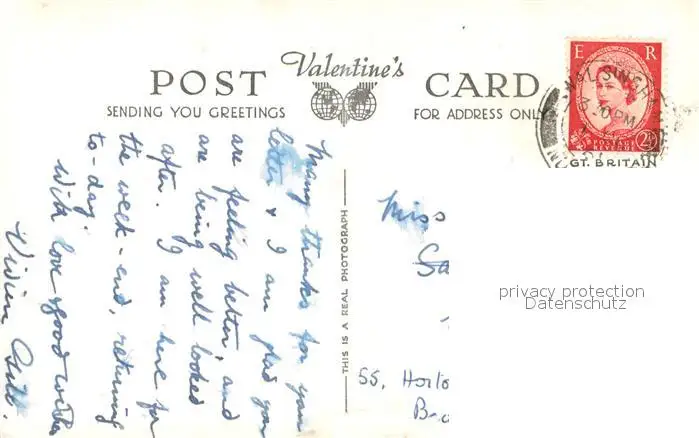 POST Valentine's CARD
SENDING YOU GREETINGS
FOR ADDRESS ONLY
E R
POSTAGE
REVENUE
2½
GT. BRITAIN
WALSINGHAM
PM
Many thanks for your
letter & I am glad you
are feeling better, and
are being well looked
after. I am here for
the week-end, returning
to-day.
With love & good wishes
Vivien
THIS IS A REAL PHOTOGRAPH
Miss
55, Horto
privacy protection
Datenschutz